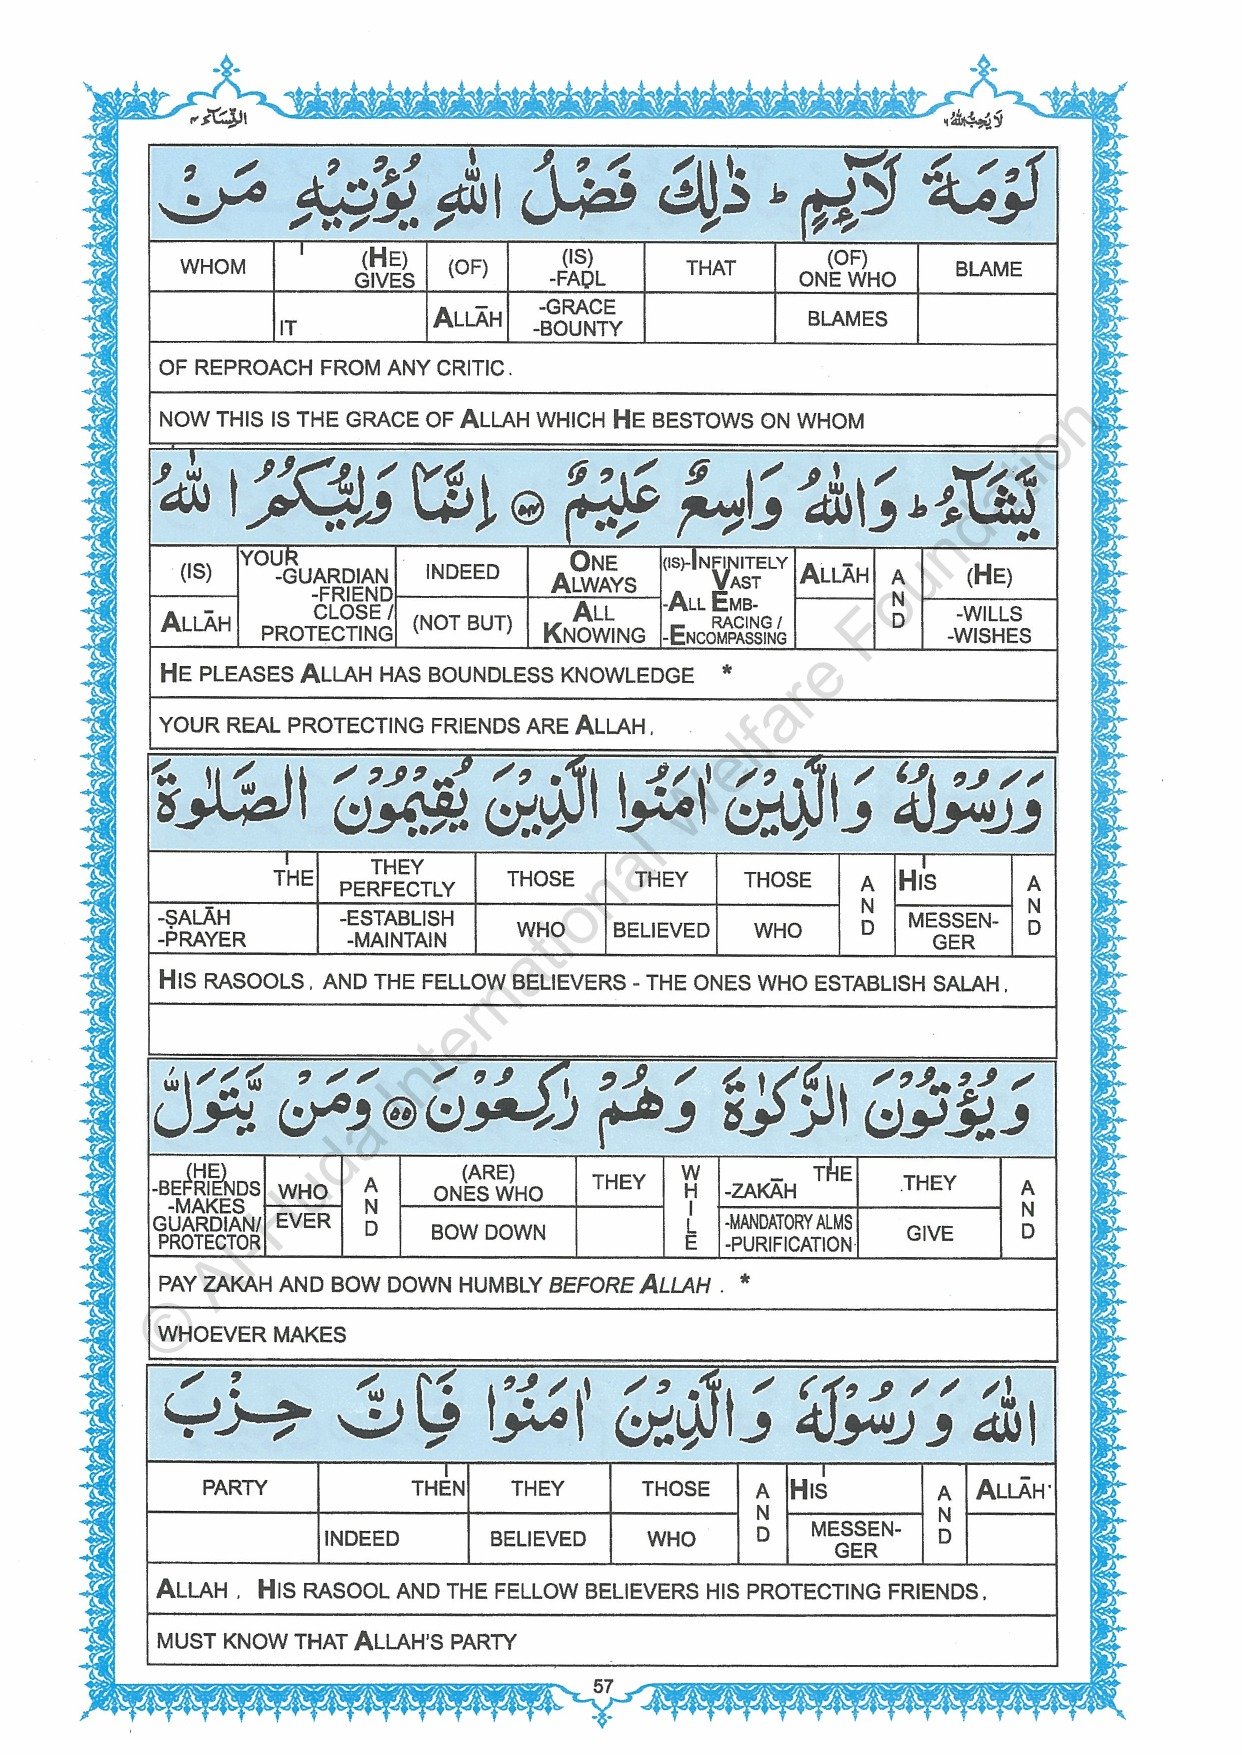 النِّسَآء ٤
لَا يُحِبُّ اللهُ ٦
لَوْمَةَ لَآئِمٍ ؕ ذٰلِكَ فَضْلُ اللّٰهِ يُؤْتِيْهِ مَنْ
BLAME (OF) ONE WHO BLAMES THAT (IS) -FAḌL -GRACE -BOUNTY (OF) ALLĀH (HE) GIVES IT WHOM
OF REPROACH FROM ANY CRITIC.
NOW THIS IS THE GRACE OF ALLAH WHICH HE BESTOWS ON WHOM
يَّشَآءُ ؕ وَاللّٰهُ وَاسِعٌ عَلِيْمٌ ﴿۵۴﴾ اِنَّمَا وَلِيُّكُمُ اللّٰهُ
(HE) -WILLS -WISHES AND ALLĀH (IS)-INFINITELY VAST -ALL EMB- RACING / -ENCOMPASSING ONE ALWAYS ALL KNOWING INDEED (NOT BUT) YOUR -GUARDIAN -FRIEND CLOSE / PROTECTING (IS) ALLĀH
HE PLEASES ALLAH HAS BOUNDLESS KNOWLEDGE *
YOUR REAL PROTECTING FRIENDS ARE ALLAH,
وَرَسُوْلُهٗ وَالَّذِيْنَ اٰمَنُوا الَّذِيْنَ يُقِيْمُوْنَ الصَّلٰوةَ
AND HIS MESSEN- GER AND THOSE WHO THEY BELIEVED THOSE WHO THEY PERFECTLY -ESTABLISH -MAINTAIN THE -ṢALĀH -PRAYER
HIS RASOOLS, AND THE FELLOW BELIEVERS - THE ONES WHO ESTABLISH SALAH,
وَيُؤْتُوْنَ الزَّكٰوةَ وَهُمْ رٰكِعُوْنَ ﴿۵۵﴾ وَمَنْ يَّتَوَلَّ
AND THEY GIVE THE -ZAKĀH -MANDATORY ALMS -PURIFICATION WHILE THEY (ARE) ONES WHO BOW DOWN AND WHO EVER (HE) -BEFRIENDS -MAKES GUARDIAN/ PROTECTOR
PAY ZAKAH AND BOW DOWN HUMBLY BEFORE ALLAH . *
WHOEVER MAKES
اللّٰهَ وَرَسُوْلَهٗ وَالَّذِيْنَ اٰمَنُوْا فَاِنَّ حِزْبَ
ALLĀH AND HIS MESSEN- GER AND THOSE WHO THEY BELIEVED THEN INDEED PARTY
ALLAH, HIS RASOOL AND THE FELLOW BELIEVERS HIS PROTECTING FRIENDS,
MUST KNOW THAT ALLAH'S PARTY
57
© Al-Huda International Welfare Foundation